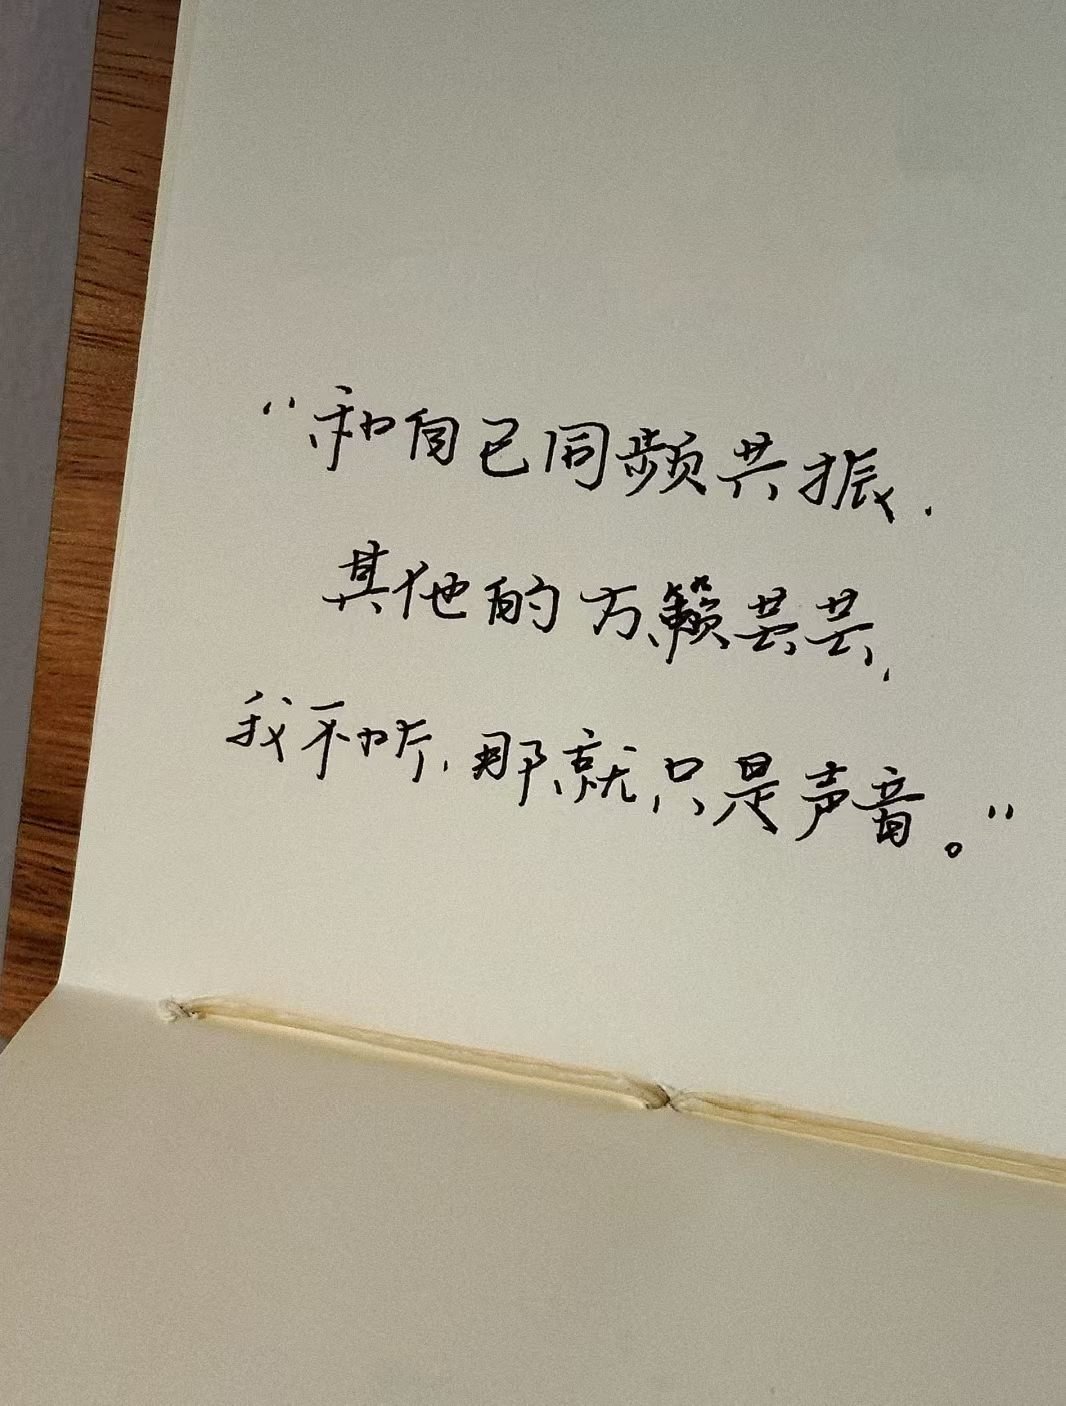 “和自己同频共振，
其他的万籁芸芸，
我不听，那就只是声音。”